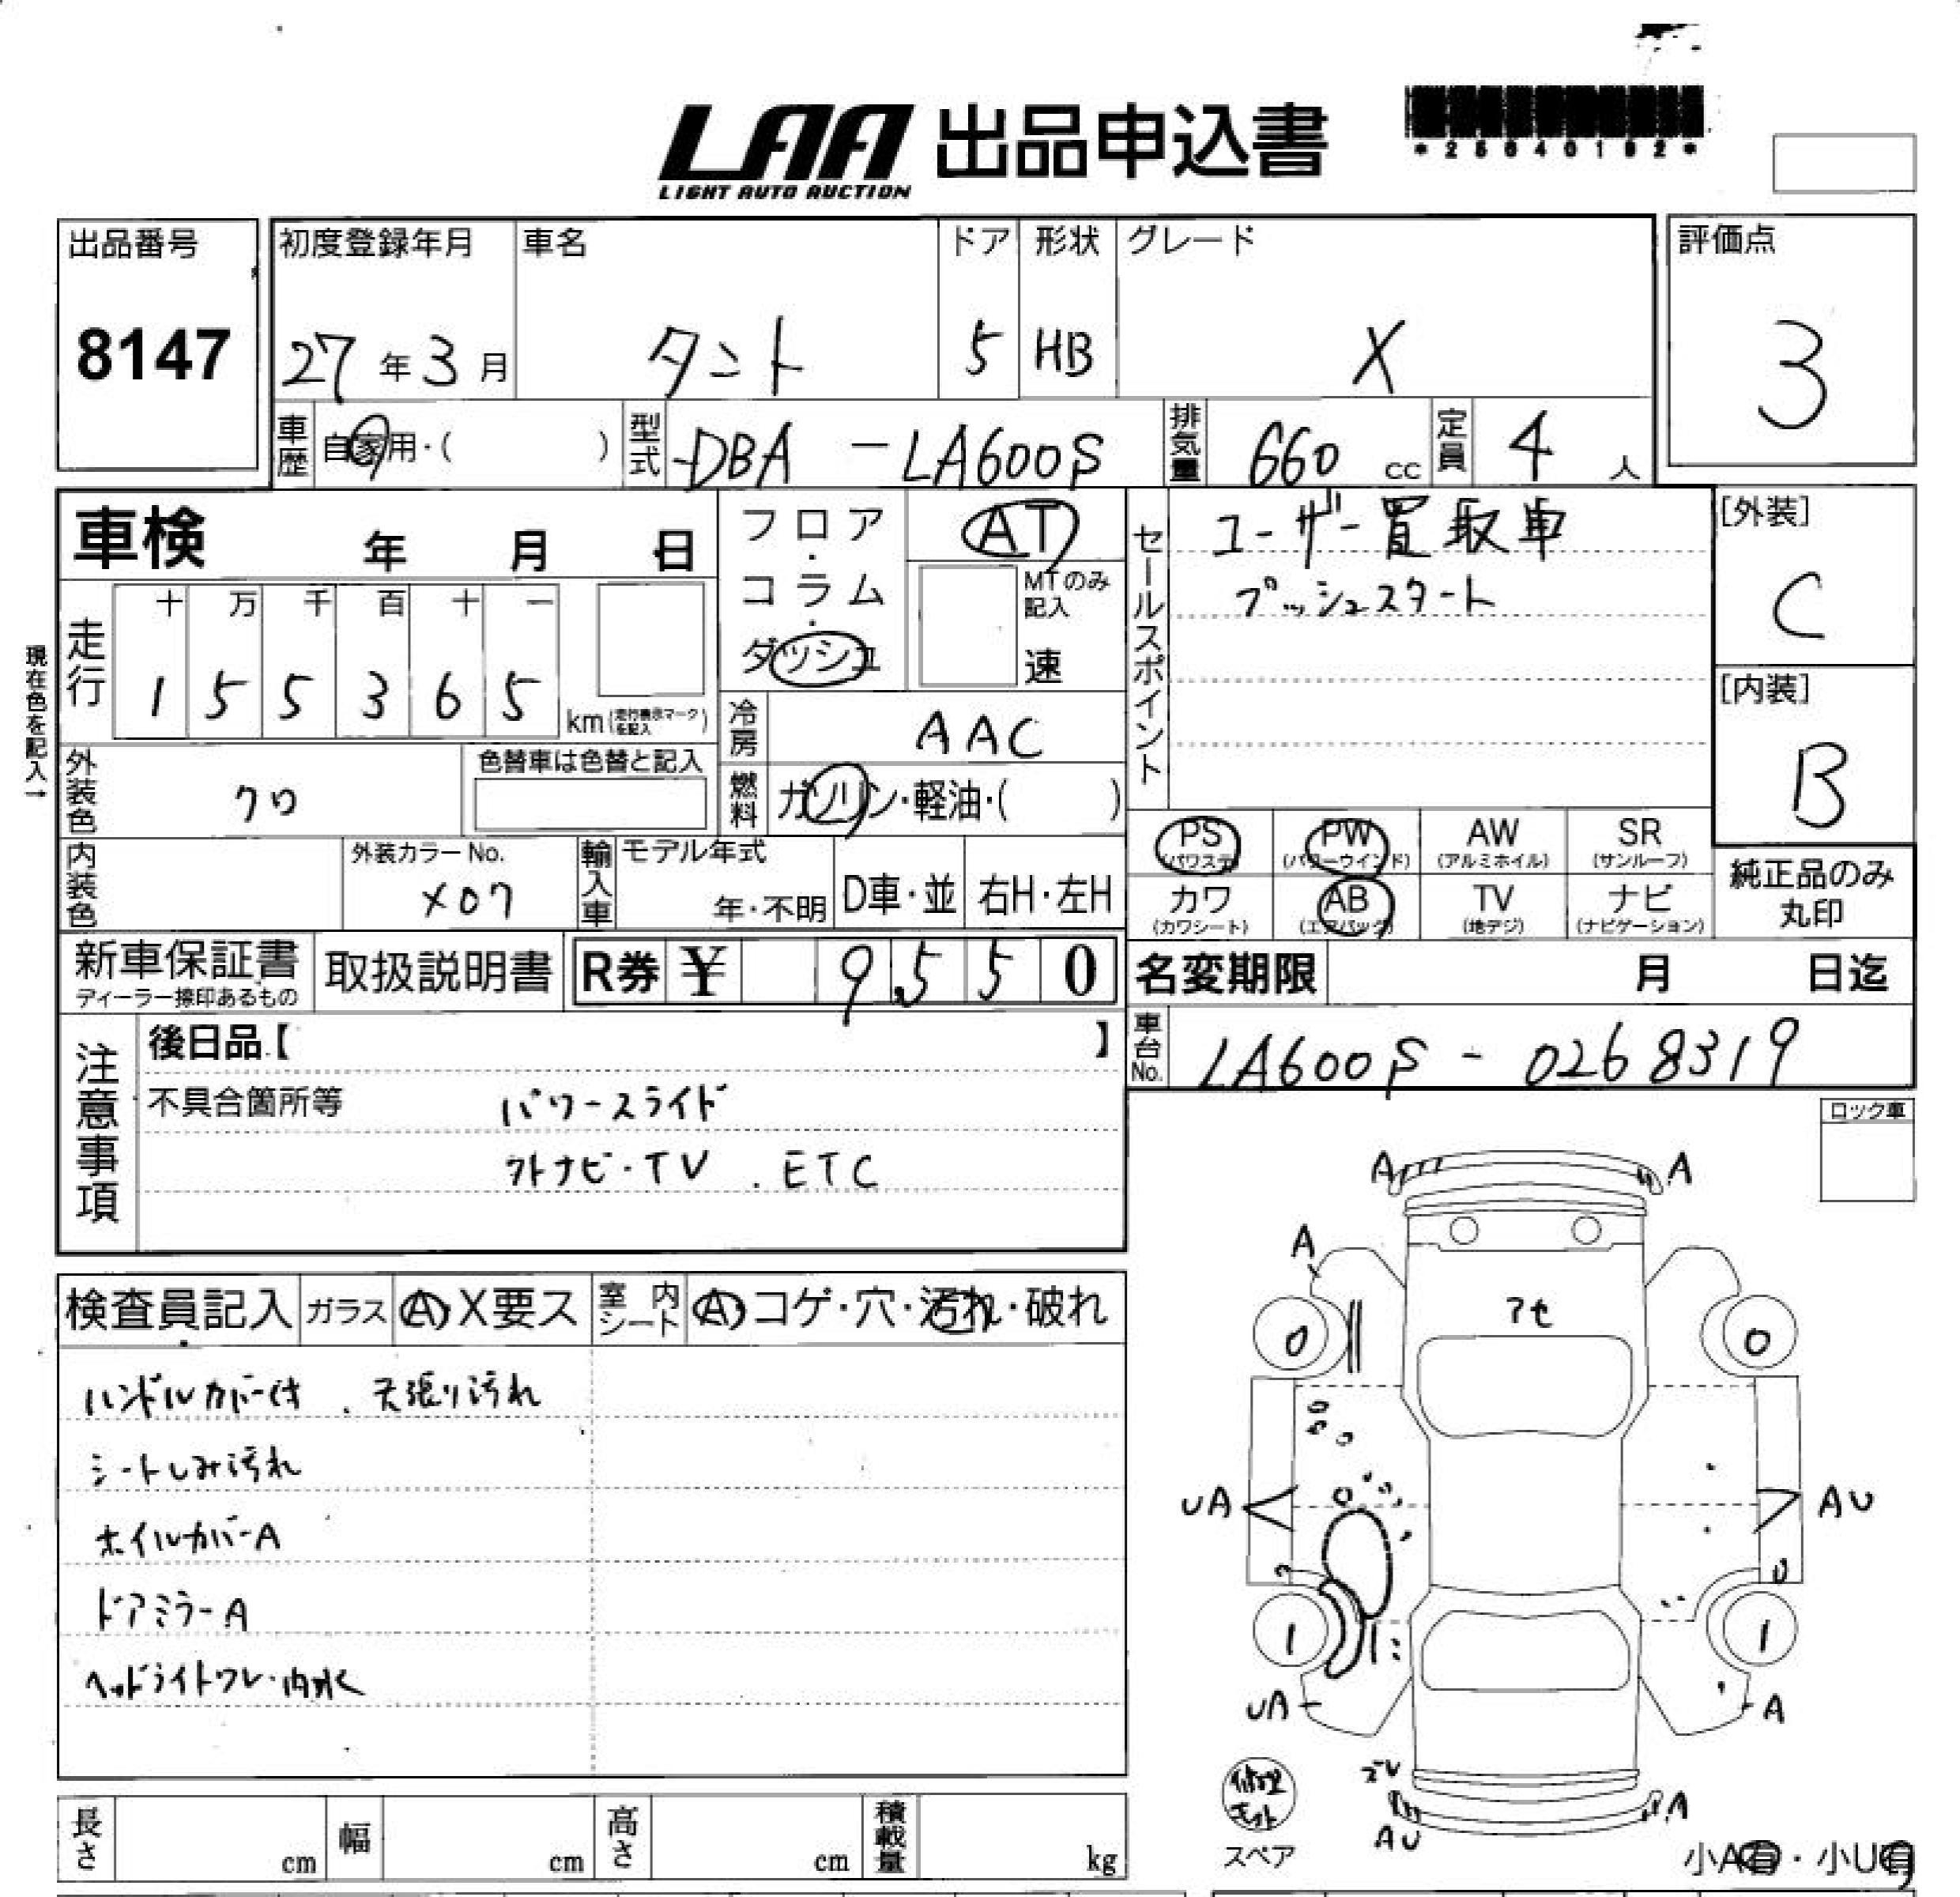 LAA 出品申込書
LIGHT AUTO AUCTION
*25040192*
出品番号
8147
初度登録年月
27年3月
車名
タント
ドア
5
形状
HB
グレード
X
評価点
3
車歴 自家用・( )
型式 DBA-LA600S
排気量 660 cc
定員 4 人
車検 年 月 日
フロア・コラム・ダッシュ
AT
MTのみ記入
速
セールスポイント
ユーザー買取車
プッシュスタート
[外装]
C
[内装]
B
現在色を記入→
走行
十 万 千 百 十 一
1 5 5 3 6 5
km(走行表示マークを記入)
冷房 AAC
燃料 ガソリン・軽油・( )
外装色 クロ
色替車は色替と記入
内装色
外装カラーNo.
X07
輸入車
モデル年式
年・不明
D車・並
右H・左H
PS (パワステ)
PW (パワーウインド)
AW (アルミホイル)
SR (サンルーフ)
カワ (カワシート)
AB (エアバッグ)
TV (地デジ)
ナビ (ナビゲーション)
純正品のみ丸印
新車保証書
ディーラー捺印あるもの
取扱説明書
R券 ¥ 9,550
名変期限 月 日迄
車台No. LA600S-0268319
注意事項
後日品【 】
不具合箇所等 パワースライド
外ナビ・TV . ETC
ロック車
検査員記入
ガラス A・X要ス
室内シート A・コゲ・穴・汚れ・破れ
ハンドルカバー付 . 天張り汚れ
シートしみ汚れ
ホイルカバーA
ドアミラーA
ヘッドライトワレ・内水
A
A
A
アセ
0
0
UA
AU
U
1
1
UA
A
ズレ
A
AU
修理キット
スペア
小A有・小U有
長さ cm
幅 cm
高さ cm
積載量 kg